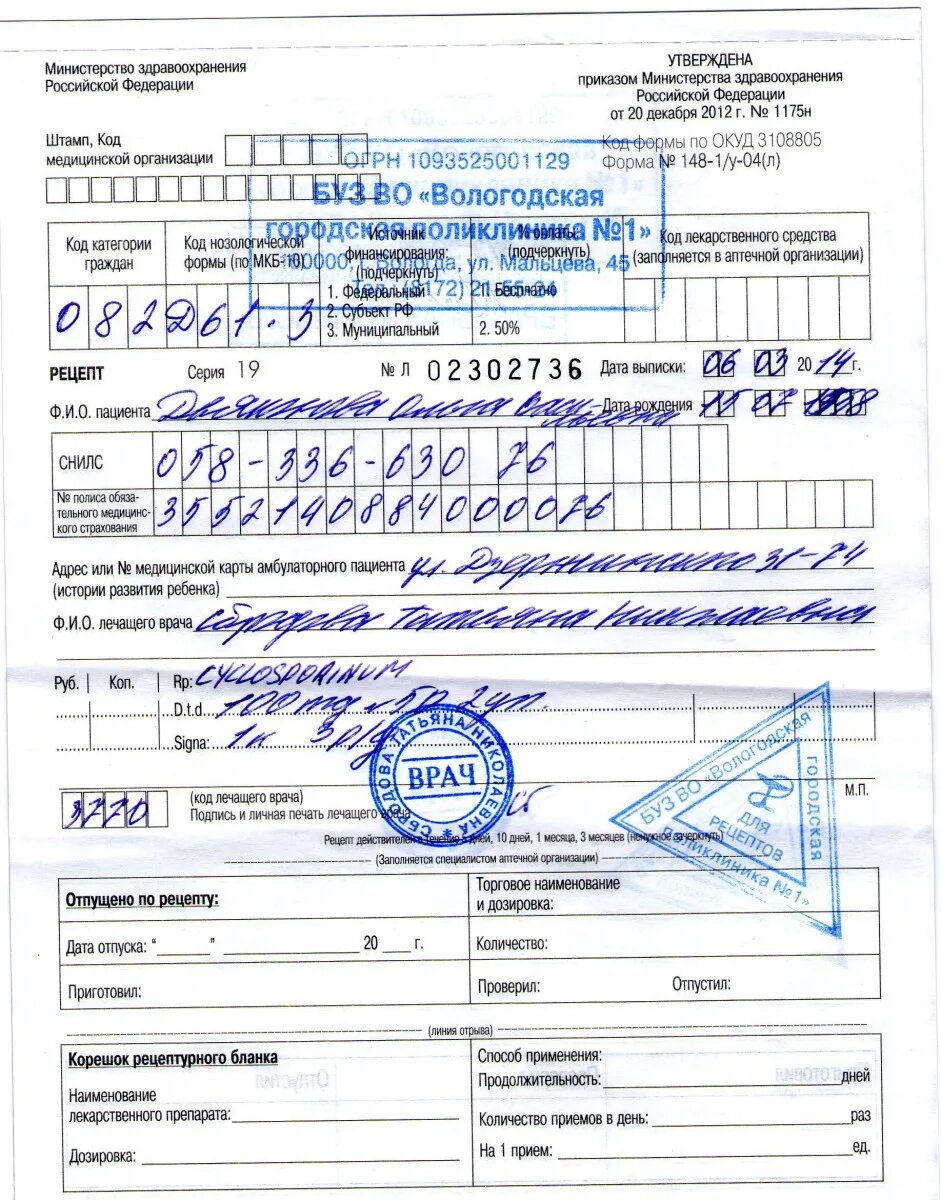 Министерство здравоохранения
Российской Федерации
УТВЕРЖДЕНА
приказом Министерства здравоохранения
Российской Федерации
от 20 декабря 2012 г. № 1175н
Код формы по ОКУД 3108805
Форма № 148-1/у-04(л)
Штамп, Код
медицинской организации
ОГРН 1093525001129
БУЗ ВО «Вологодская
городская поликлиника №1»
160000, г. Вологда, ул. Мальцева, 45
Код категории
граждан
Код нозологической
формы (по МКБ-10)
Источник
финансирования:
(подчеркнуть)
1. Федеральный
2. Субъект РФ
3. Муниципальный
% оплаты:
(подчеркнуть)
1. Бесплатно
2. 50%
Код лекарственного средства
(заполняется в аптечной организации)
082 D61.3
РЕЦЕПТ Серия 19 № Л 02302736 Дата выписки: 06 03 2014г.
Ф.И.О. пациента Ольга Дата рождения 15 07
СНИЛС 058-336-630 76
№ полиса обяза-
тельного медицинс-
кого страхования
3552140884000076
Адрес или № медицинской карты амбулаторного пациента ул. Дзержинского 31-74
(истории развития ребенка)
Ф.И.О. лечащего врача Сбродова Татьяна Николаевна
Руб. Коп. Rp: CYCLOSPORINUM
D.t.d. 100 mg № 50 2 уп.
Signa: 1к 3 р/д
СБРОДОВА ТАТЬЯНА НИКОЛАЕВНА
ВРАЧ
БУЗ ВО «Вологодская городская поликлиника №1»
ДЛЯ
РЕЦЕПТОВ
3770
(код лечащего врача)
Подпись и личная печать лечащего врача
М.П.
Рецепт действителен в течение 5 дней, 10 дней, 1 месяца, 3 месяцев (ненужное зачеркнуть)
(Заполняется специалистом аптечной организации)
Отпущено по рецепту:
Торговое наименование
и дозировка:
Дата отпуска: “______” ______________ 20 ____ г.
Количество:
Приготовил:
Проверил: Отпустил:
(линия отрыва)
Корешок рецептурного бланка
Способ применения:
Продолжительность: дней
Наименование
лекарственного препарата:
Количество приемов в день: раз
Дозировка:
На 1 прием: ед.